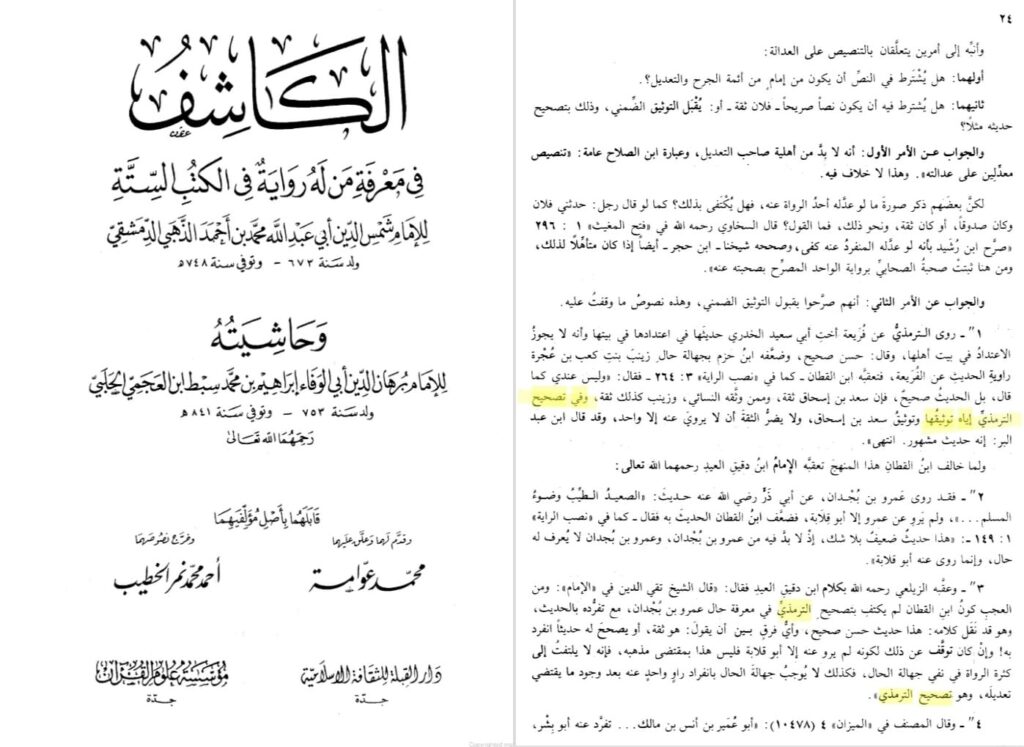 الكاشف
في معرفة من له رواية في الكتب الستة
للإمام شمس الدين أبي عبد الله محمد بن أحمد الذهبي الدمشقي
ولد سنة ٦٧٣ - وتوفي سنة ٧٤٨ هـ
وحاشيته
للإمام برهان الدين أبي الوفاء إبراهيم بن محمد سبط ابن العجمي الحلبي
ولد سنة ٧٥٣ - وتوفي سنة ٨٤١ هـ
رحمهما الله تعالى
قابلهما بأصل مؤلفيهما
وقدم لهما وعلق عليهما
وخرج نصوصهما
محمد عوامة
أحمد محمد نمر الخطيب
دار القبلة للثقافة الإسلامية
جدة
مؤسسة علوم القرآن
جدة
٢٤
وأنبِّه إلى أمرين يتعلَّقان بالتنصيص على العدالة:
أولهما: هل يُشْترط في النصِّ أن يكون من إمامٍ من أئمة الجرح والتعديل؟.
ثانيهما: هل يُشترط فيه أن يكون نصاً صريحاً ـ فلان ثقة ـ أو: يُقْبَل التوثيق الضِّمني، وذلك بتصحيح
حديثه مثلاً؟
والجواب عن الأمر الأول: أنه لا بدَّ من أهلية صاحب التعديل، وعبارة ابن الصلاح عامة: «تنصيص
معدِّلِين على عدالته». وهذا لا خلاف فيه.
لكنَّ بعضَهم ذكر صورةَ ما لو عدَّله أحدُ الرواة عنه، فهل يُكْتفى بذلك؟ كما لو قال رجل: حدثني فلان
وكان صدوقاً، أو كان ثقة، ونحو ذلك، فما القول؟ قال السخاوي رحمه الله في «فتح المغيث» ١ : ٢٩٦
«صرَّح ابن رُشَيد بأنه لو عدَّله المنفردُ عنه كفى، وصححه شيخنا ـ ابن حجر ـ أيضاً إذا كان متأهِّلاً لذلك،
ومن هنا ثبتتْ صحبةُ الصحابيِّ برواية الواحد المصرِّح بصحبته عنه».
والجواب عن الأمر الثاني: أنهم صرَّحوا بقبول التوثيق الضمني، وهذه نصوصُ ما وقفتُ عليه.
١" ـ روى الترمذيُّ عن فُرَيعة أختِ أبي سعيد الخدري حديثَها في اعتدادها في بيتها وأنه لا يجوزُ
الاعتدادُ في بيت أهلها، وقال: حسن صحيح، وضعَّفه ابنُ حزم بجهالة حال زينبَ بنتِ كعب بن عُجْرة
راويةِ الحديثِ عن الفُرَيعة، فتعقبَّه ابن القطان ـ كما في «نصب الراية» ٣ : ٢٦٤ ـ فقال: «وليس عندي كما
قال، بل الحديثُ صحيحٌ، فإن سعد بن إسحاق ثقة، وممن وثَّقه النسائي، وزينب كذلك ثقة، وفي تصحيح
الترمذيِّ إياه توثيقُها وتوثيقُ سعد بن إسحاق، ولا يضرُّ الثقةَ أن لا يرويَ عنه إلا واحد، وقد قال ابن عبد
البر: إنه حديث مشهور. انتهى».
ولما خالف ابنُ القطان هذا المنهجَ تعقبَّه الإمامُ ابنُ دقيقِ العيدِ رحمهما الله تعالى:
٢" ـ فقد روى عَمرو بن بُجْدان، عن أبي ذَرٍّ رضي الله عنه حديث: «الصعيدُ الطيِّبُ وضوءُ
المسلم...»، ولم يَروِ عن عمرو إلا أبو قِلابة، فضعَّف ابنُ القطان الحديثَ به فقال ـ كما في «نصب الراية»
١ : ١٤٩ ـ: «هذا حديثٌ ضعيفٌ بلا شك، إذْ لا بدَّ فيه من عمرو بن بُجْدان، وعمرو بن بُجدان لا يُعرف له
حال، وإنما روى عنه أبو قلابة».
٣" ـ وعقَّبه الزيلعي رحمه الله بكلام ابن دقيقِ العيدِ فقال: «قال الشيخ تقي الدين في «الإمام»: ومن
العجبِ كونُ ابنِ القطان لم يكتفِ بتصحيح الترمذيِّ في معرفة حال عمرو بن بُجْدان، مع تفرُّده بالحديث،
وهو قد نَقَل كلامَه: هذا حديث حسن صحيح، وأيُّ فرقٍ بين أن يقولَ: هو ثقة، أو يصححَ له حديثاً انفرد
به! وإنْ كان توقَّف عن ذلك لكونه لم يرو عنه إلا أبو قلابة فليس هذا بمقتضى مذهبه، فإنه لا يلتفتُ إلى
كثرة الرواة في نفي جهالة الحال، فكذلك لا يُوجبُ جهالةَ الحال بانفراد راوٍ واحدٍ عنه بعد وجود ما يقتضي
تعديلَه، وهو تصحيح الترمذي».
٤" ـ وقال المصنف في «الميزان» ٤ (١٠٤٧٨): «أبو عُمَير بن أنس بن مالك... تفرَّد عنه أبو بِشْر،